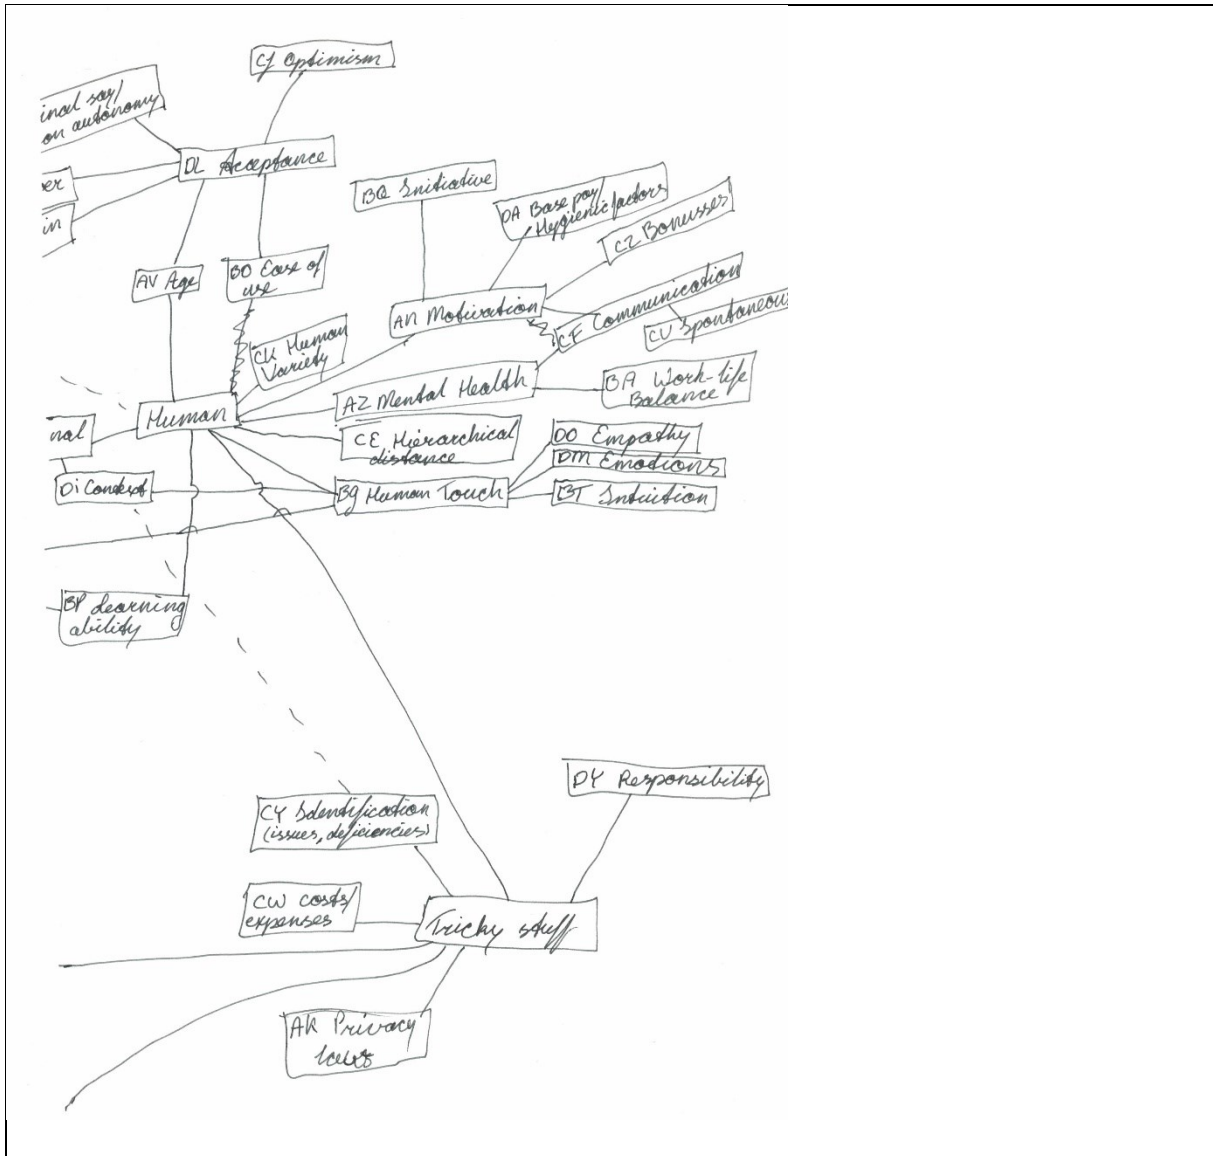 CJ Optimism
inal say/
on autonomy
DL Acceptance
er
in
BQ Initiative
DA Base pay/
Hygienic factors
CZ Bonusses
AV Age
BO Ease of
use
AN Motivation
CF Communication
CU Spontaneou
CK Human
Variety
AZ Mental Health
BA Work-life
Balance
Human
nal
CE Hierarchical
distance
DO Empathy
DM Emotions
BT Intuition
Di Context
Bg Human Touch
BP Learning
ability
DY Responsibility
CY Identification
(issues, deficiencies)
CW costs/
expenses
Tricky stuff
AK Privacy
laws